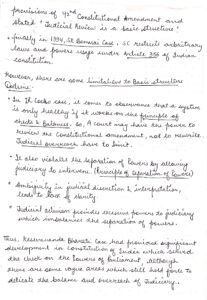 provisions of 42nd Constitutional Amendment and
stated "Judicial Review is a basic structure".
• finally in 1994, SR Bommai Case, SC restricts arbitrary
laws and powers usage under Article 356 of Indian
constitution.
However, there are some limitations to Basic structure
Doctrine:
* In IR Coelho case, it came to observance that a system
is only healthy if it works on the principle of
checks & balances. So, a Court may have the power to
review the Constitutional amendment, not to rewrite.
Judicial overreach have to limit.
* It also violates the separation of Powers by allowing
judiciary to intervene. (Principle of separation of Powers)
* Ambiguity in judicial discretion & interpretation,
leads to loss of sanity
* Judicial activism provides excessive powers to judiciary
which imbalances the separation of powers.
Thus, Kesavananda Bharati Case had provided significant
development in constitution of India which solved
the check on the Powers of Parliament, although
there are some vague areas which still hold forte to
delicate the balance and overreach of Judiciary.